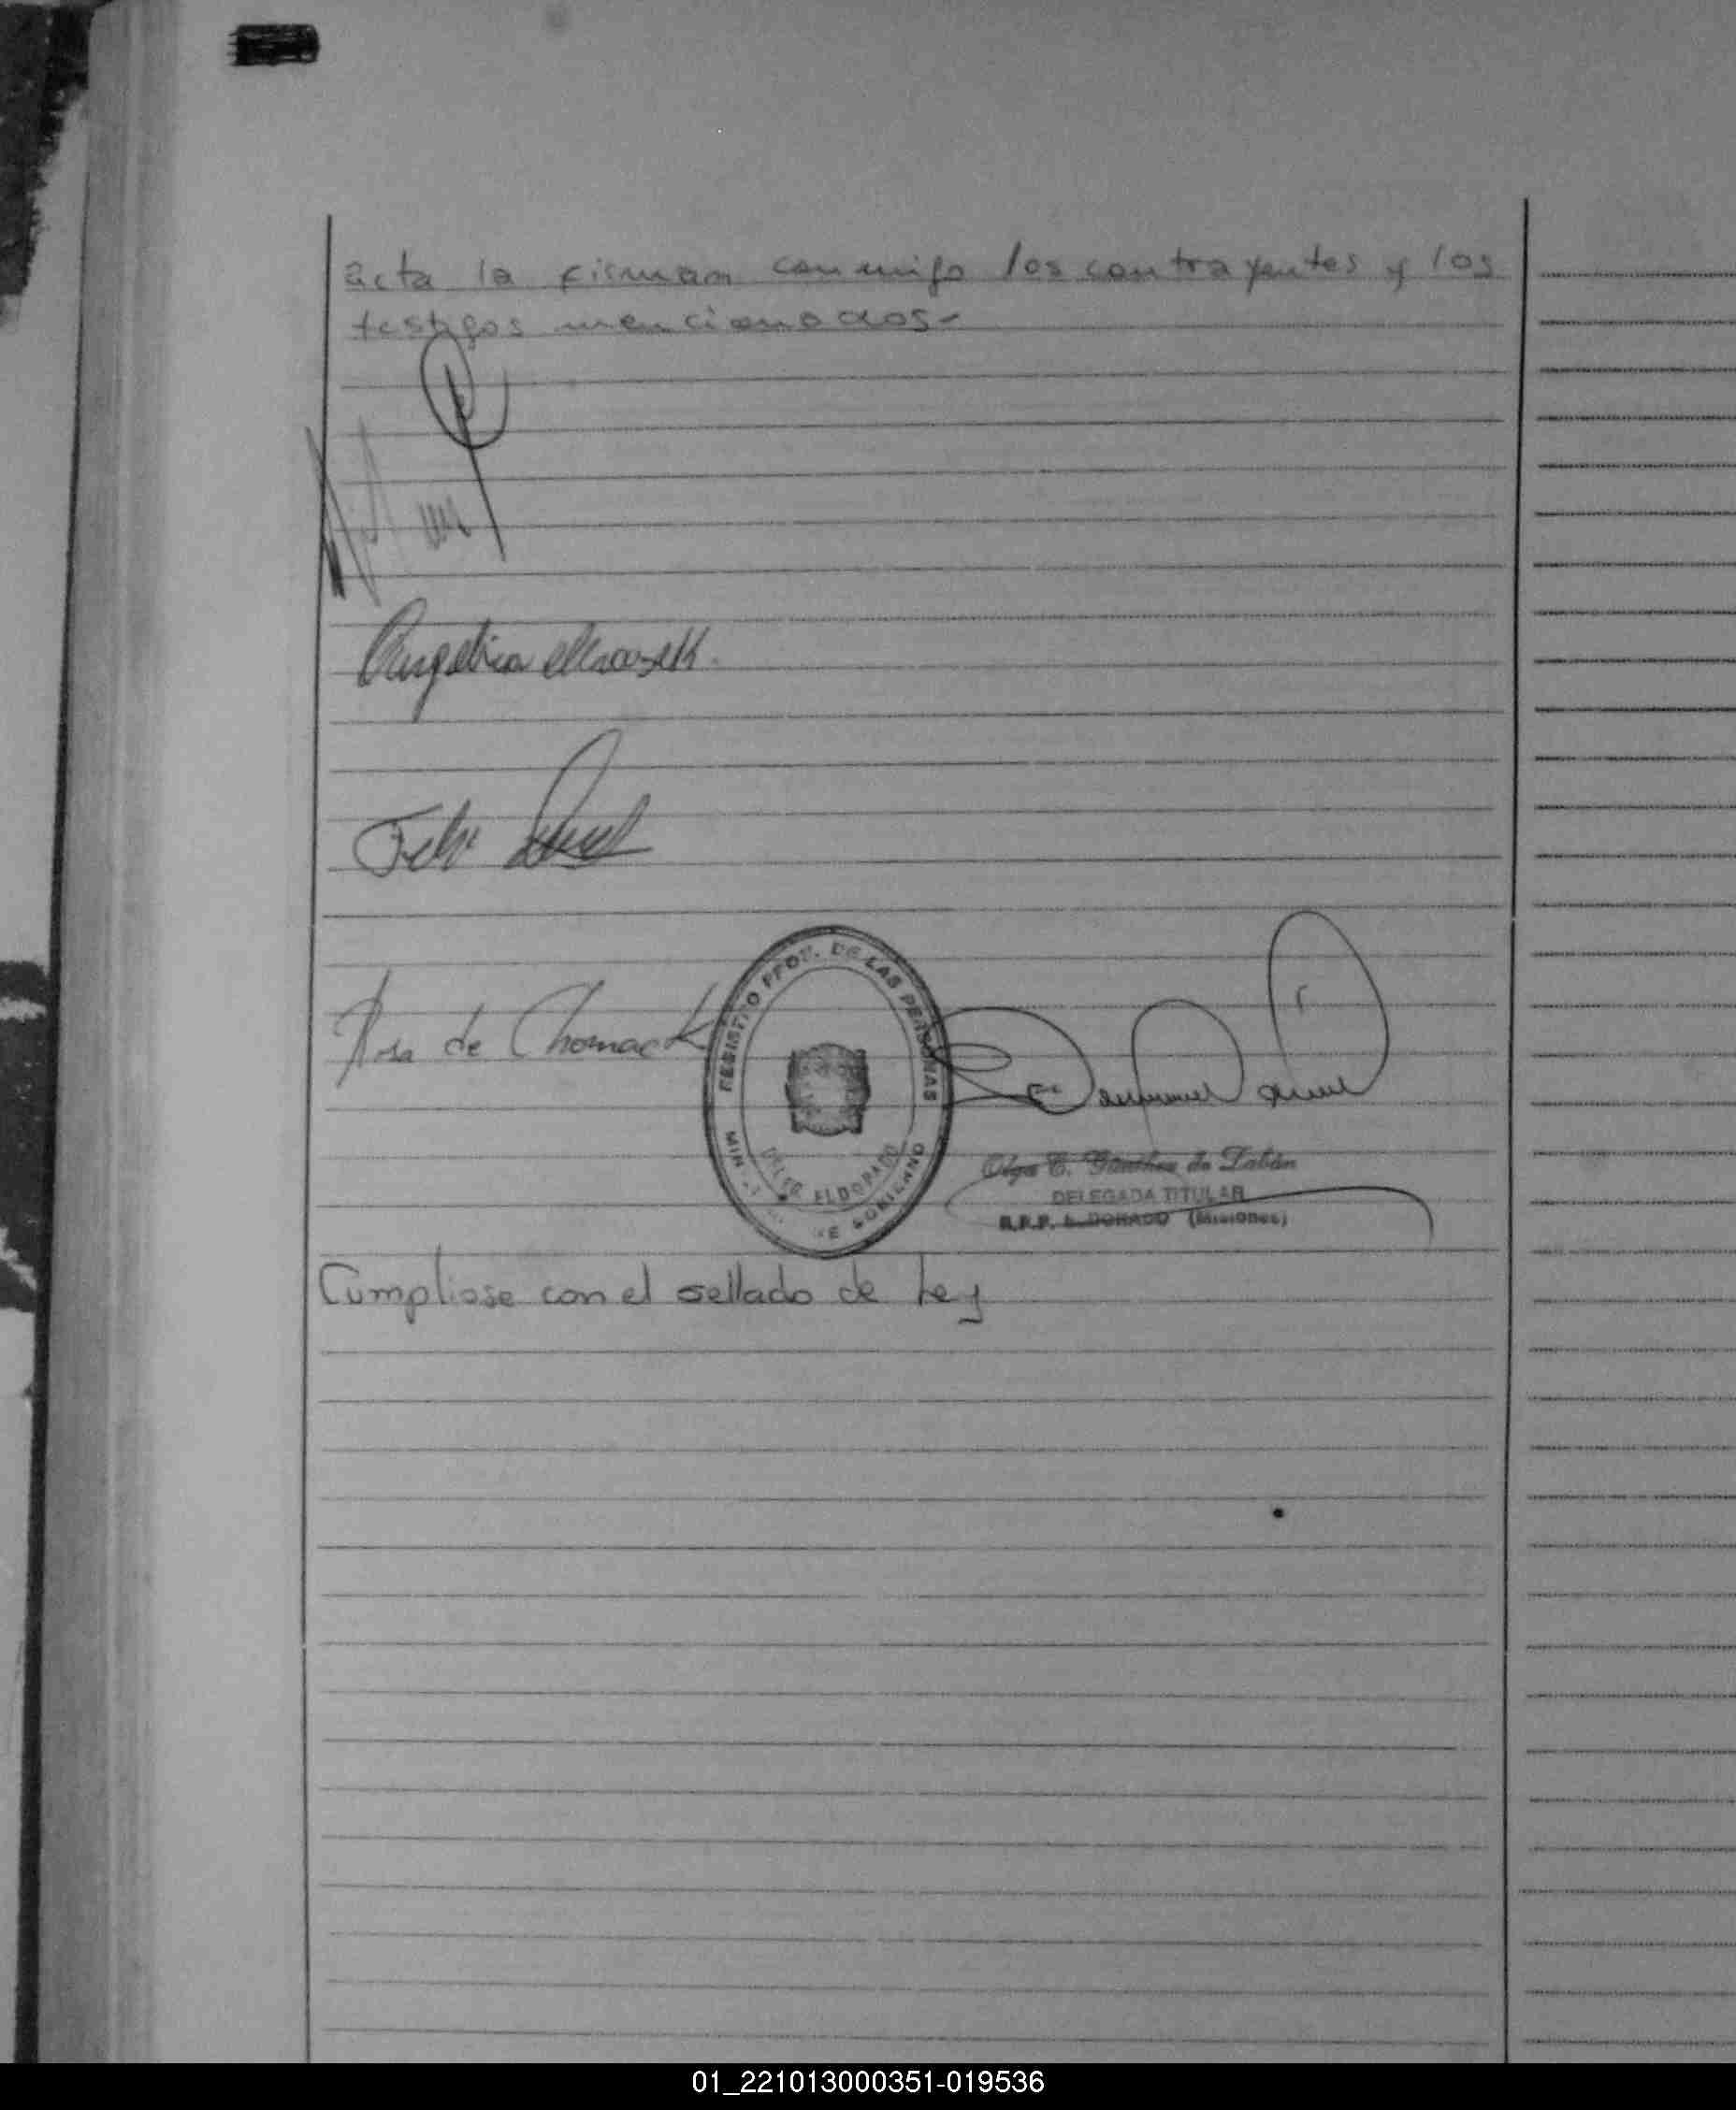 acta la firman conmigo los contrayentes y los
testigos mencionados-
Angelica
Felix
Rosa de Chomack
REGISTRO PROV. DE LAS PERSONAS
DELEG. ELDORADO
MIN. DE GOBIERNO
Olga E. Günther de Labán
DELEGADA TITULAR
R.P.P. ELDORADO (Misiones)
Cumpliose con el sellado de Ley
01_221013000351-019536